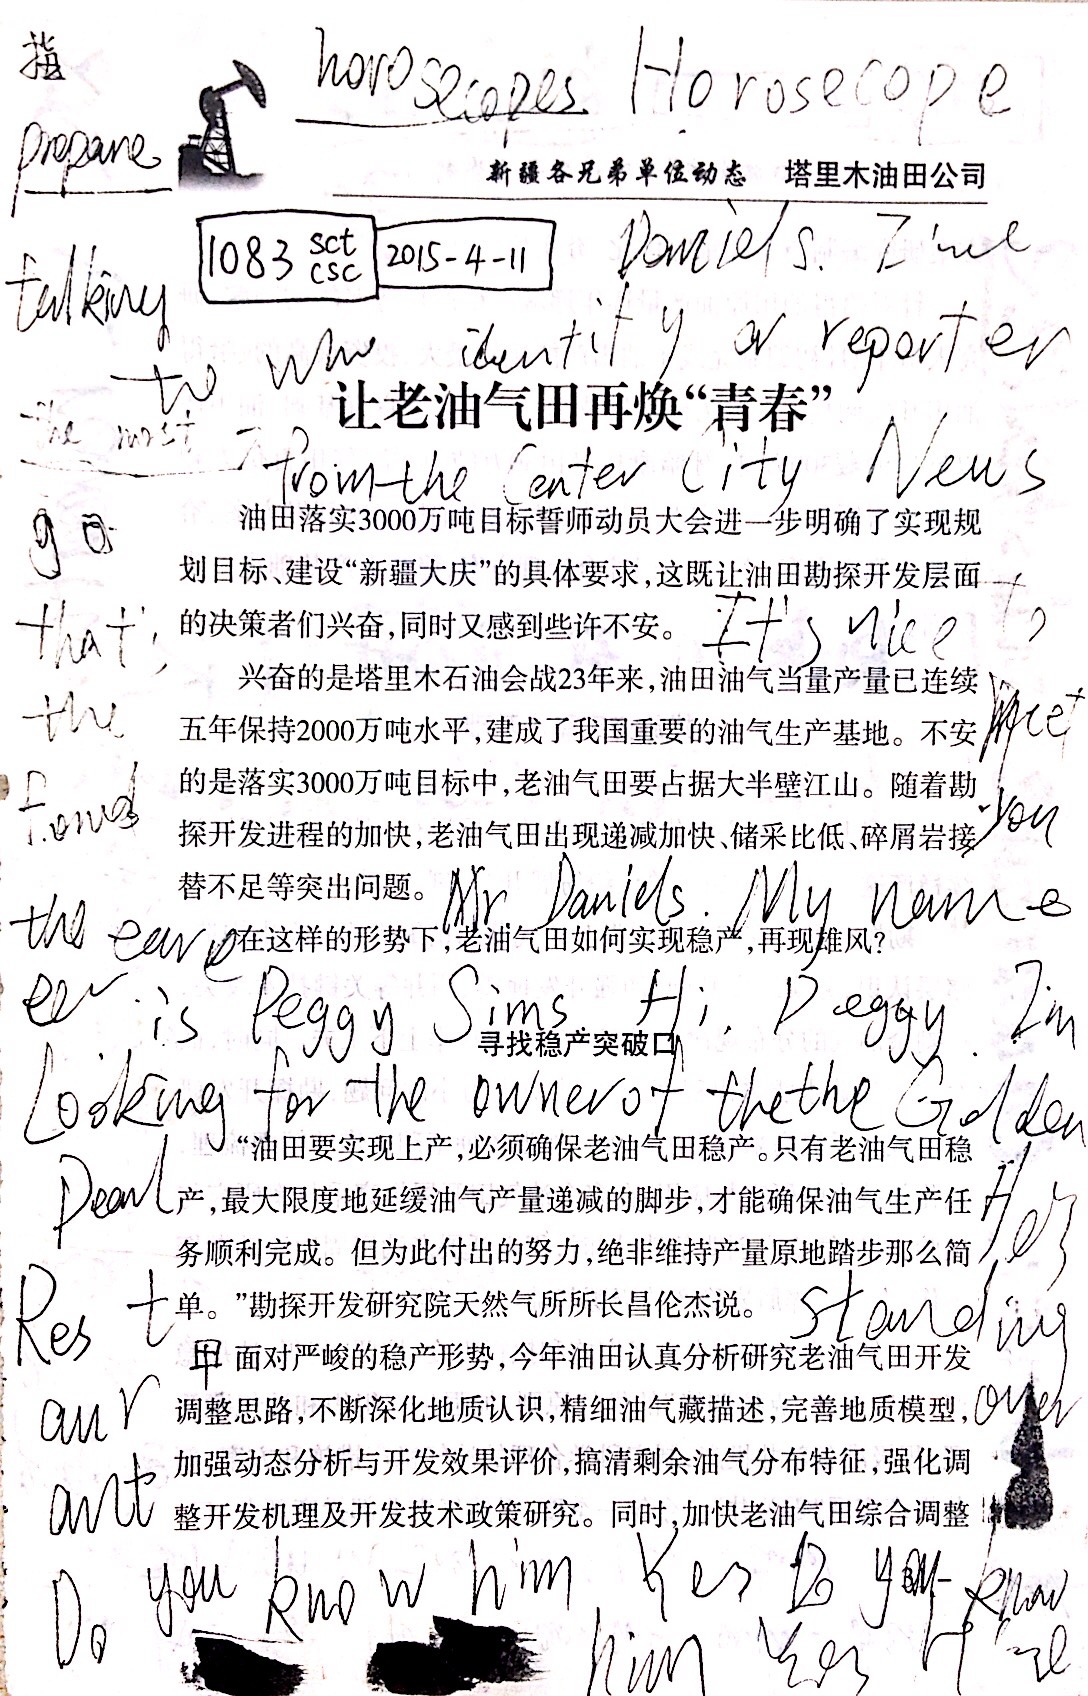 指
horosecopes Horosecope
propane
新疆各兄弟单位动态 塔里木油田公司
1083 sct csc 2015-4-11
Daniels.
talking
to who identify or reporter
让老油气田再焕“青春”
the most
from the Center City News
油田落实3000万吨目标誓师动员大会进一步明确了实现规
go
划目标、建设“新疆大庆”的具体要求，这既让油田勘探开发层面
的决策者们兴奋，同时又感到些许不安。 It's nice to
that's
兴奋的是塔里木石油会战23年来，油田油气当量产量已连续
the
五年保持2000万吨水平，建成了我国重要的油气生产基地。不安 meet
的是落实3000万吨目标中，老油气田要占据大半壁江山。随着勘
探开发进程的加快，老油气田出现递减加快、储采比低、碎屑岩接 you
替不足等突出问题。 Mr. Daniels. My name
the
在这样的形势下，老油气田如何实现稳产，再现雄风？
is Peggy Sims. Hi, Peggy. I'm
寻找稳产突破口
Looking for the owner of the the Golden
“油田要实现上产，必须确保老油气田稳产。只有老油气田稳
Pearl 产，最大限度地延缓油气产量递减的脚步，才能确保油气生产任 He's
务顺利完成。但为此付出的努力，绝非维持产量原地踏步那么简
Rest 单。”勘探开发研究院天然气所所长昌伦杰说。 standing
甲 面对严峻的稳产形势，今年油田认真分析研究老油气田开发
aur 调整思路，不断深化地质认识，精细油气藏描述，完善地质模型， over
加强动态分析与开发效果评价，搞清剩余油气分布特征，强化调
ant 整开发机理及开发技术政策研究。同时，加快老油气田综合调整
Do you know him Yes Do you know
him Yes